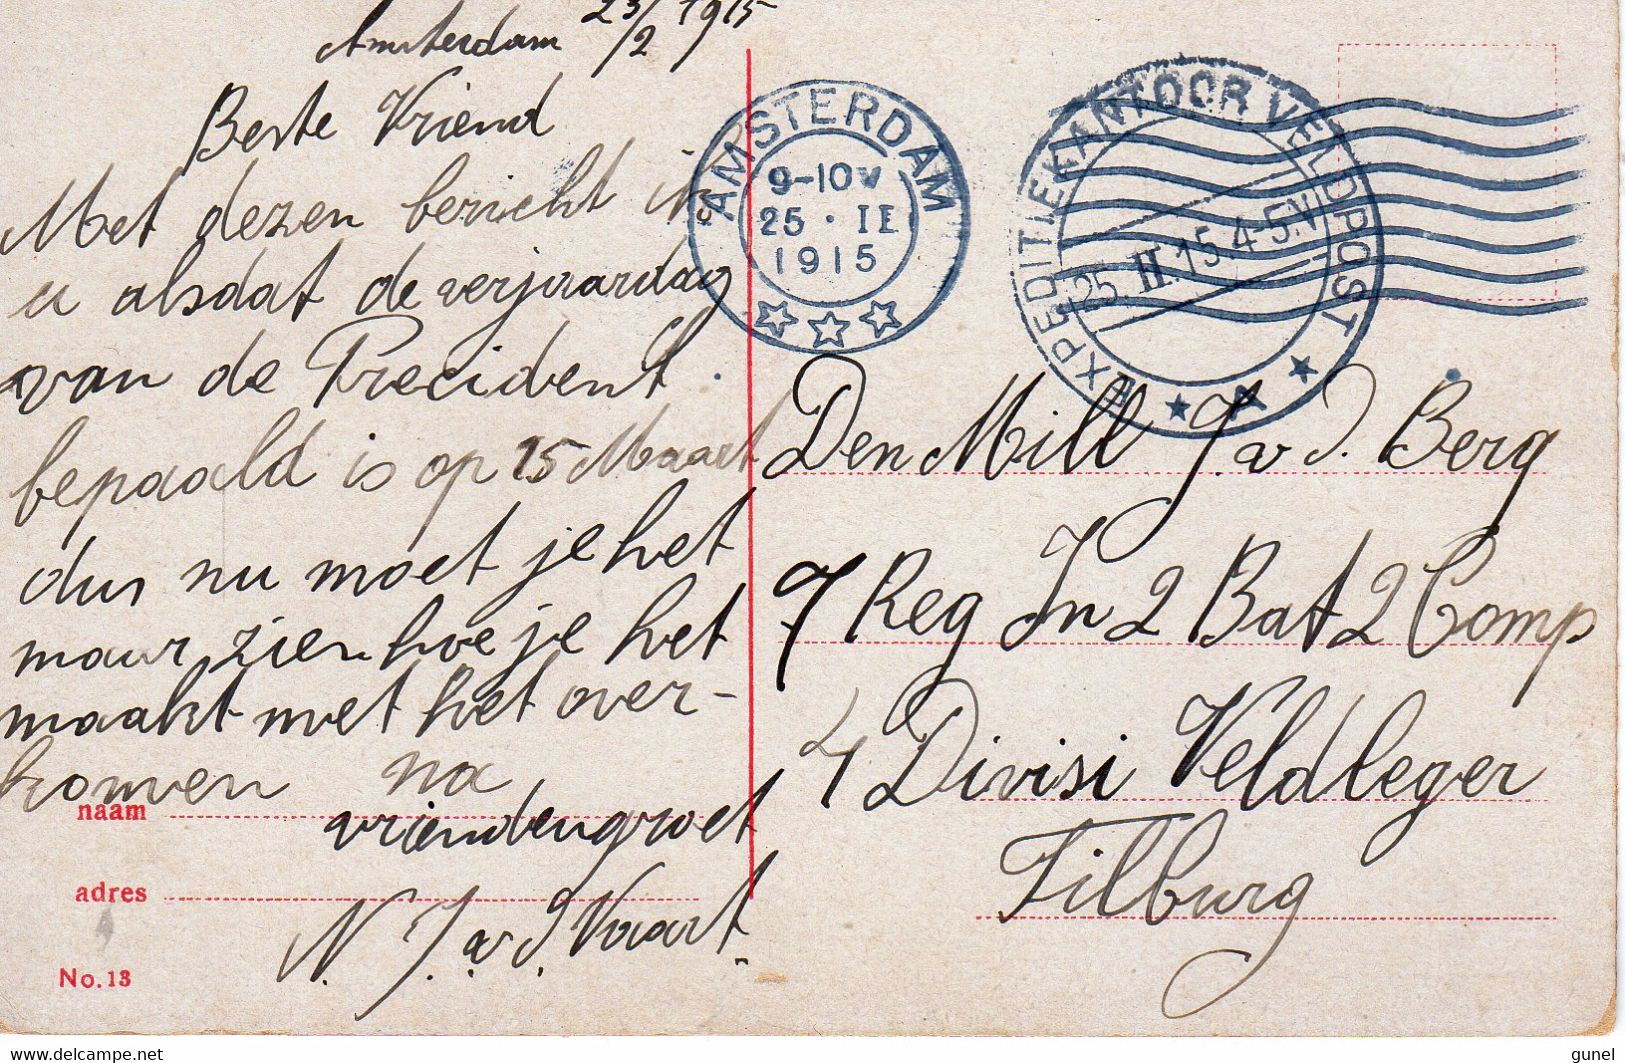 Amsterdam 23/2 1915
Beste Vriend
Met dezen bericht ik
u alsdat de verjaardag
van de Precident
bepaald is op 15 Maart
dus nu moet je het
maar zien hoe je het
maakt met het over-
komen na
vriendengroet
N. J. v. d. Vaart.
naam
adres
No. 13
AMSTERDAM
9-10V
25 · II
1915
EXPEDITIEKANTOOR VELDPOST
25. II. 15. 4-5.N
★ A ★
Den Mill J. v. d. Berg
7 Reg In 2 Bat 2 Comp
4 Divisi Veldleger
Tilburg
www.delcampe.net
gunel